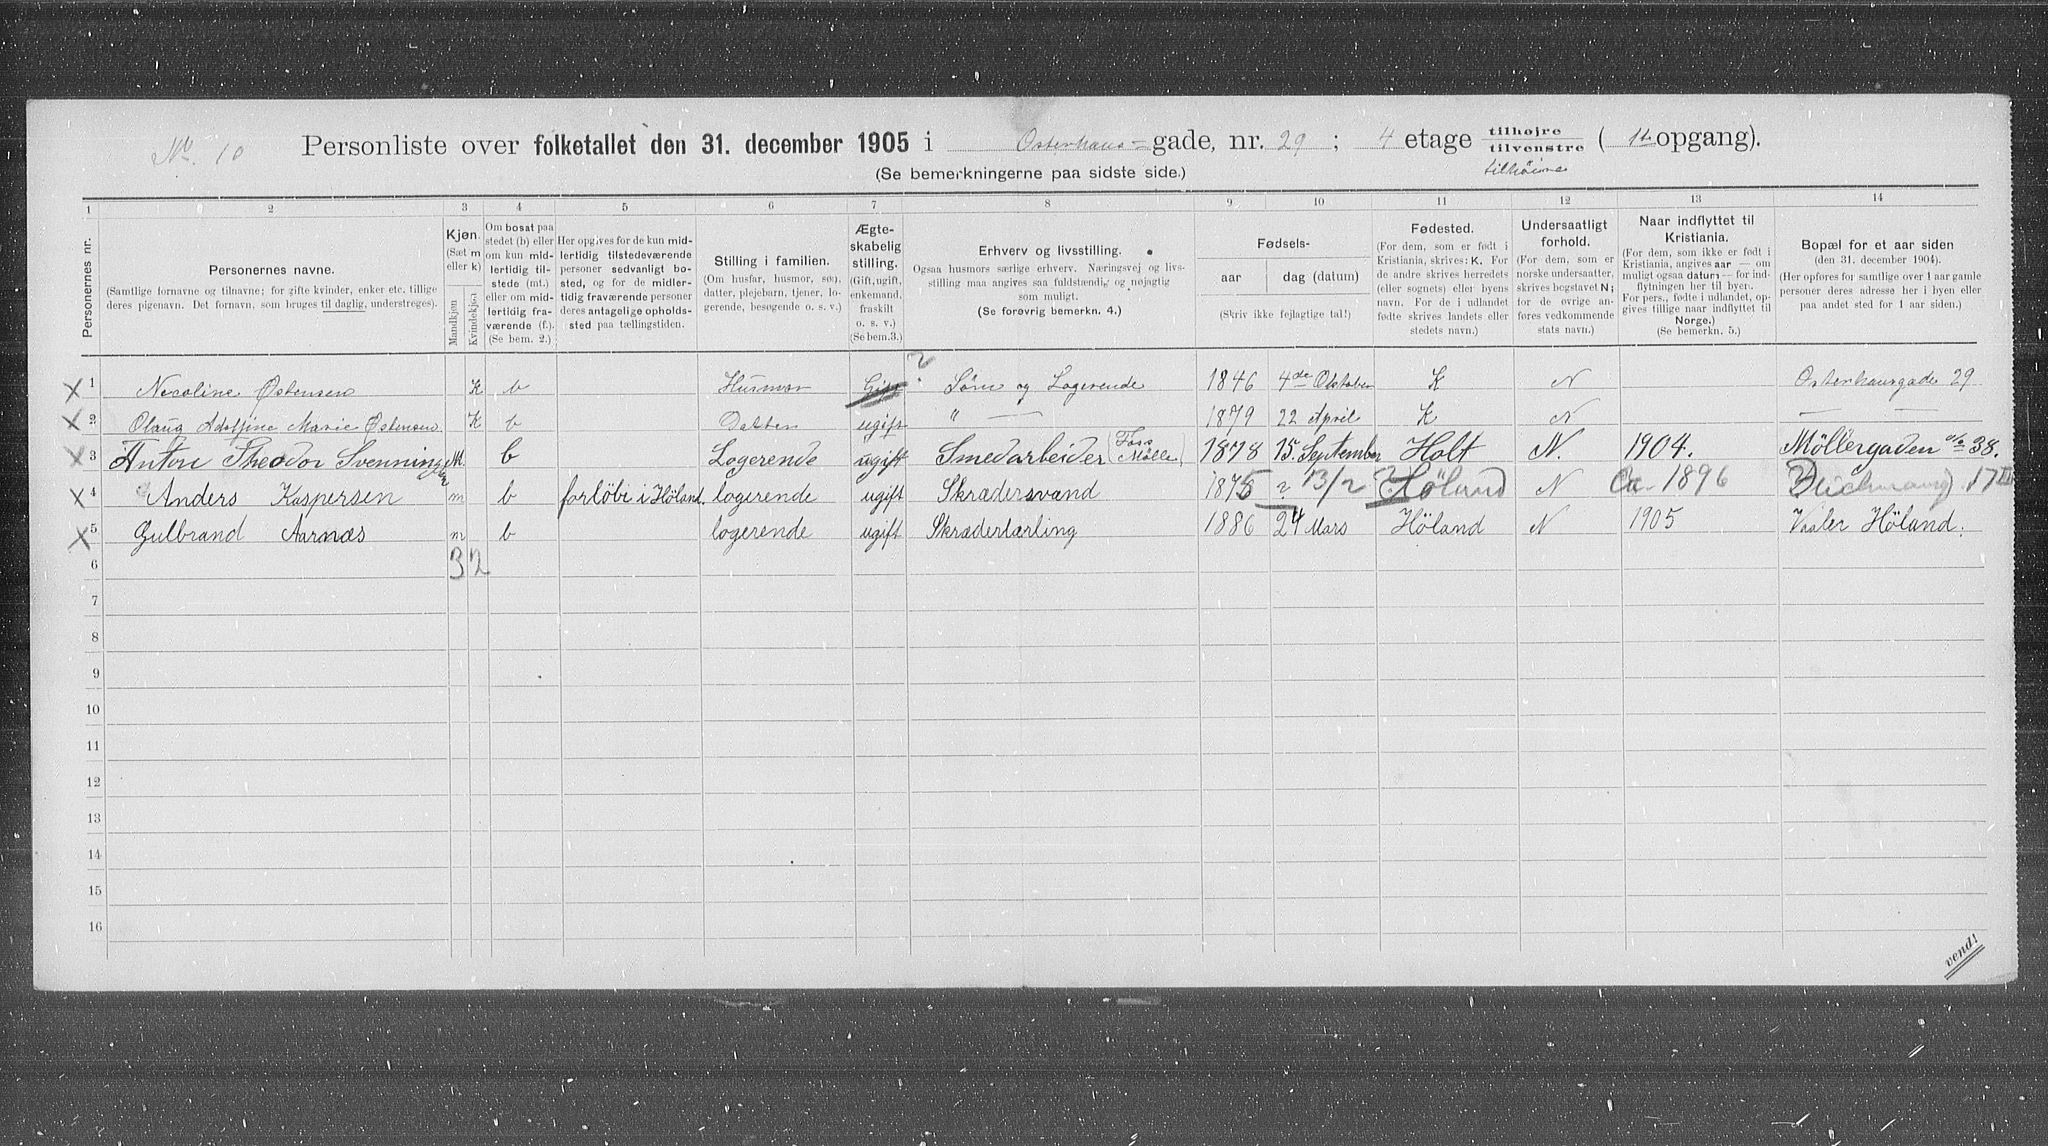 No. 10 Personliste over folketallet den 31. december 1905 i Osterhaus=gade, nr. 29 ; 4 etage tilhøjre tilvenstre ( 1ste opgang).
(Se bemerkningerne paa sidste side.) tilhøire
1 2 3 4 5 6 7 8 9 10 11 12 13 14
Personernes nr.
Personernes navne.
(Samtlige fornavne og tilnavne; for gifte kvinder, enker etc. tillige deres pigenavn. Det fornavn, som bruges til daglig, understreges).
Kjøn.
(Sæt m eller k)
Mandkjøn. Kvindekjøn.
Om bosat paa stedet (b) eller om kun midlertidig tilstede (mt.) eller om midlertidig fraværende (f.).
(Se bem. 2.)
Her opgives for de kun midlertidig tilstedeværende personer sedvanligt bosted, og for de midlertidig fraværende personer deres antagelige opholdssted paa tællingstiden.
Stilling i familien.
(Om husfar, husmor, søn, datter, plejebarn, tjener, logerende, besøgende o. s. v.)
Ægteskabelig stilling.
(Gift, ugift, enkemand, fraskilt o. s. v.)
(Se bem. 3.)
Erhverv og livsstilling.
Ogsaa husmors særlige erhverv. Næringsvej og livsstilling maa angives saa fuldstændig og nøjagtig som muligt.
(Se forøvrig bemerkn. 4.)
Fødsels-
aar dag (datum)
(Skriv ikke fejlagtige tal!)
Fødested.
(For dem, som er født i Kristiania, skrives: K. For de andre skrives herredets (eller sognets) eller byens navn. For de i udlandet fødte skrives landets eller stedets navn.)
Undersaatligt forhold.
(For dem, som er norske undersaatter, skrives bogstavet N; for de øvrige anføres vedkommende stats navn.)
Naar indflyttet til Kristiania.
(For dem, som ikke er født i Kristiania, angives aar — om muligt ogsaa datum — for indflytningen her til byen. For pers., fødte i udlandet, opgives tillige naar indflyttet til Norge.)
(Se bemerkn. 5.)
Bopæl for et aar siden
(den 31. december 1904).
(Her opføres for samtlige over 1 aar gamle personer deres adresse her i byen eller paa andet sted for 1 aar siden.)
X 1 Nicoline Østensen K b Husmor Gift ? Søm og Logerende 1846 4de Oktober K N Osterhausgade 29
X 2 Olaug Adolfine Marie Østensen K b Datter ugift " — 1879 22 April K N — —
X 3 Anton Theodor Svenningsen M. b Logerende ugift Smedarbeider 1878 15. September Holt N. 1904. Möllergaden No 38.
X 4 Anders Kaspersen m b forlöbi i Höland. logerende ugift Skrædersvand 1875 ? 13/2 ? Höland N Ca. 1896 17 III
X 5 Gulbrand Aarnæs m b logerende ugift Skræderlærling 1886 24 Mars Höland N 1905 Vaaler Höland.
6 3 2
7
8
9
10
11
12
13
14
15
16
vend!